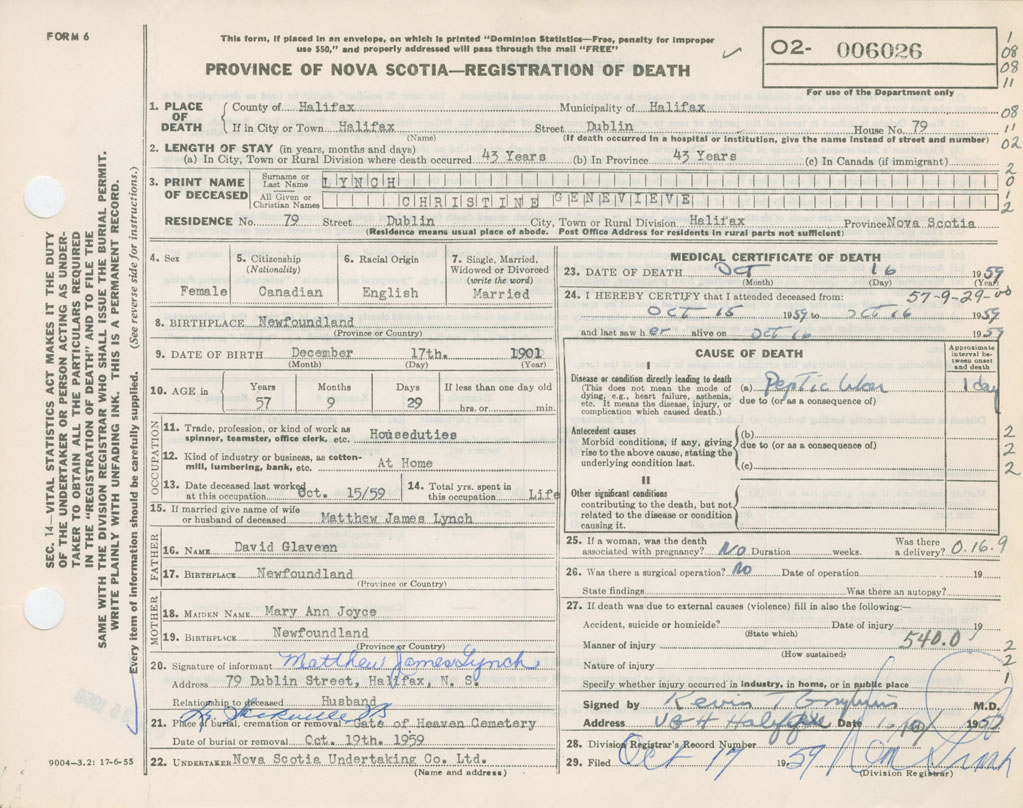 FORM 6
This form, if placed in an envelope, on which is printed "Dominion Statistics—Free, penalty for improper
use $50," and properly addressed will pass through the mail "FREE"
02- 006026
For use of the Department only
PROVINCE OF NOVA SCOTIA—REGISTRATION OF DEATH
1. PLACE OF DEATH County of Halifax Municipality of Halifax
If in City or Town Halifax Street Dublin House No. 79
(Name) (If death occurred in a hospital or institution, give the name instead of street and number)
2. LENGTH OF STAY (in years, months and days)
(a) In City, Town or Rural Division where death occurred 43 Years (b) In Province 43 Years (c) In Canada (if immigrant)
3. PRINT NAME OF DECEASED Surname or Last Name LYNCH
All Given or Christian Names CHRISTINE GENEVIEVE
RESIDENCE No. 79 Street Dublin City, Town or Rural Division Halifax Province Nova Scotia
(Residence means usual place of abode. Post Office Address for residents in rural parts not sufficient)
4. Sex
Female
5. Citizenship
(Nationality)
Canadian
6. Racial Origin
English
7. Single, Married,
Widowed or Divorced
(write the word)
Married
8. BIRTHPLACE Newfoundland
(Province or Country)
9. DATE OF BIRTH December 17th. 1901
(Month) (Day) (Year)
10. AGE in Years Months Days If less than one day old
57 9 29 hrs. or min.
OCCUPATION
11. Trade, profession, or kind of work as
spinner, teamster, office clerk, etc. Houseduties
12. Kind of industry or business, as cotton-
mill, lumbering, bank, etc. At Home
13. Date deceased last worked
at this occupation Oct. 15/59
14. Total yrs. spent in
this occupation Life
15. If married give name of wife
or husband of deceased Matthew James Lynch
FATHER
16. NAME David Glaveen
17. BIRTHPLACE Newfoundland
(Province or Country)
MOTHER
18. MAIDEN NAME Mary Ann Joyce
19. BIRTHPLACE Newfoundland
(Province or Country)
20. Signature of informant Matthew James Lynch
Address 79 Dublin Street, Halifax, N. S.
Relationship to deceased Husband
21. Place of burial, cremation or removal Gate of Heaven Cemetery
Date of burial or removal Oct. 19th. 1959
22. UNDERTAKER Nova Scotia Undertaking Co. Ltd.
(Name and address)
MEDICAL CERTIFICATE OF DEATH
23. DATE OF DEATH Oct 16 1959
(Month) (Day) (Year)
24. I HEREBY CERTIFY that I attended deceased from: 57-9-29-00
Oct 15 1959 to Oct 16 1959
and last saw her alive on Oct 16 1959
CAUSE OF DEATH
Approximate
interval be-
tween onset
and death
I
Disease or condition directly leading to death
(This does not mean the mode of
dying, e.g., heart failure, asthenia,
etc. It means the disease, injury, or
complication which caused death.)
(a) Peptic Ulcer 1 day
due to (or as a consequence of)
Antecedent causes
Morbid conditions, if any, giving
rise to the above cause, stating the
underlying condition last.
(b)
due to (or as a consequence of)
(c)
II
Other significant conditions
contributing to the death, but not
related to the disease or condition
causing it.
25. If a woman, was the death
associated with pregnancy? No Duration weeks. Was there
a delivery? 0.16.9
26. Was there a surgical operation? No Date of operation 19
State findings Was there an autopsy?
27. If death was due to external causes (violence) fill in also the following:—
Accident, suicide or homicide? Date of injury 19
(State which)
Manner of injury 540.0
(How sustained)
Nature of injury
Specify whether injury occurred in industry, in home, or in public place
Signed by Kevin M.D.
Address VGH Halifax Date 16 1959
28. Division Registrar's Record Number
29. Filed Oct 17 1959
(Division Registrar)
1
08
08
11
08
11
02
2
0
1
2
2
2
2
2
2
1
SEC. 14—VITAL STATISTICS ACT MAKES IT THE DUTY
OF THE UNDERTAKER OR PERSON ACTING AS UNDER-
TAKER TO OBTAIN ALL THE PARTICULARS REQUIRED
IN THE "REGISTRATION OF DEATH" AND TO FILE THE
SAME WITH THE DIVISION REGISTRAR WHO SHALL ISSUE THE BURIAL PERMIT.
WRITE PLAINLY WITH UNFADING INK. THIS IS A PERMANENT RECORD.
Every item of information should be carefully supplied. (See reverse side for instructions.)
9004—3.2: 17-6-55